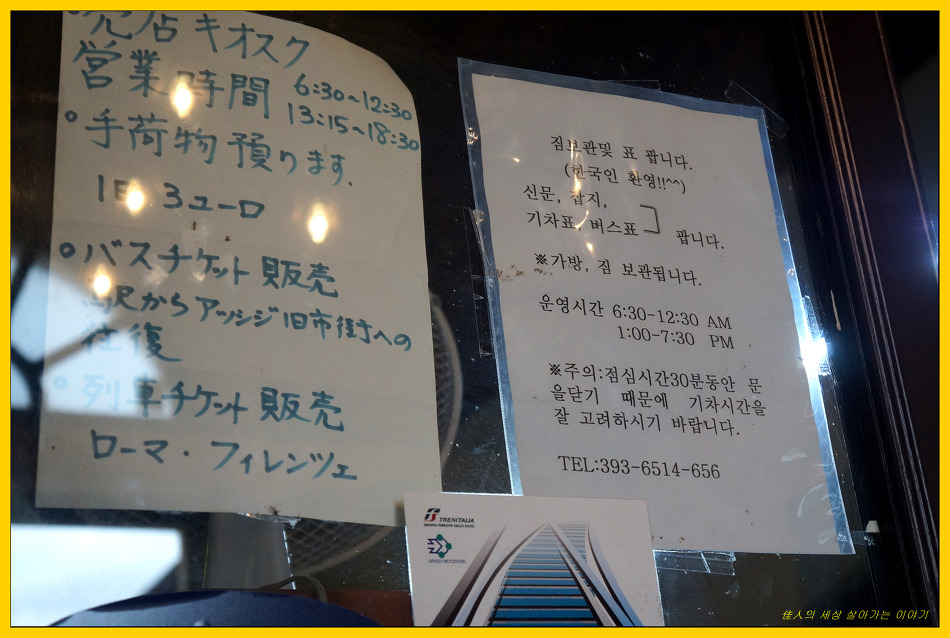 売店 キオスク
営業時間 6:30~12:30
13:15~18:30
手荷物預ります.
1日 3ユーロ
バスチケット販売
駅からアッシジ旧市街への
往復
列車チケット販売
ローマ・フィレンツェ
짐보관및 표 팝니다.
(한국인 환영!!^^)
신문, 잡지,
기차표, 버스표 팝니다.
※가방, 짐 보관됩니다.
운영시간 6:30-12:30 AM
1:00-7:30 PM
※주의:점심시간30분동안 문
을닫기 때문에 기차시간을
잘 고려하시기 바랍니다.
TEL:393-6514-656
TRENITALIA
佳人의 세상 살아가는 이야기